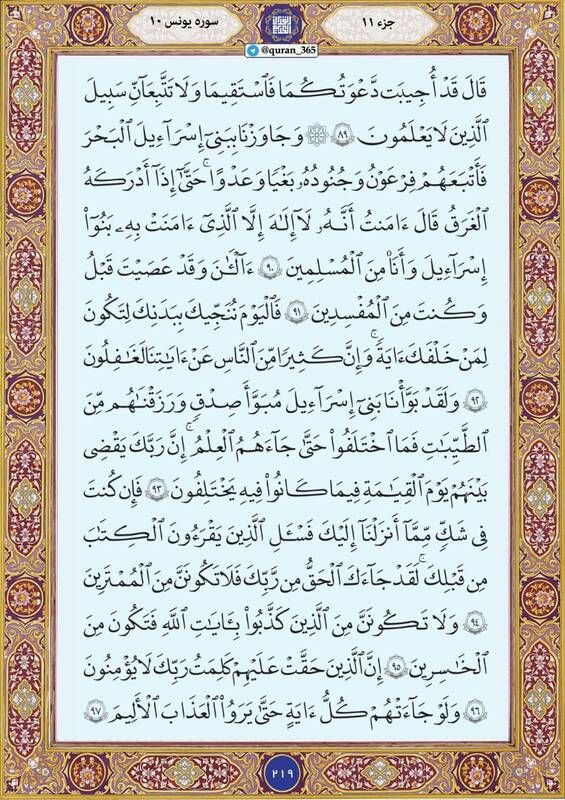 جزء ۱۱
سوره یونس ۱۰
@quran_365
قَالَ قَدۡ أُجِيبَت دَّعۡوَتُكُمَا فَٱسۡتَقِيمَا وَلَا تَتَّبِعَآنِّ سَبِيلَ
ٱلَّذِينَ لَا يَعۡلَمُونَ ۸۹ ۞ وَجَٰوَزۡنَا بِبَنِيٓ إِسۡرَٰٓءِيلَ ٱلۡبَحۡرَ
فَأَتۡبَعَهُمۡ فِرۡعَوۡنُ وَجُنُودُهُۥ بَغۡيٗا وَعَدۡوًاۖ حَتَّىٰٓ إِذَآ أَدۡرَكَهُ
ٱلۡغَرَقُ قَالَ ءَامَنتُ أَنَّهُۥ لَآ إِلَٰهَ إِلَّا ٱلَّذِيٓ ءَامَنَتۡ بِهِۦ بَنُوٓاْ
إِسۡرَٰٓءِيلَ وَأَنَا۠ مِنَ ٱلۡمُسۡلِمِينَ ۹۰ ءَآلۡـَٰٔنَ وَقَدۡ عَصَيۡتَ قَبۡلُ
وَكُنتَ مِنَ ٱلۡمُفۡسِدِينَ ۹۱ فَٱلۡيَوۡمَ نُنَجِّيكَ بِبَدَنِكَ لِتَكُونَ
لِمَنۡ خَلۡفَكَ ءَايَةٗۚ وَإِنَّ كَثِيرٗا مِّنَ ٱلنَّاسِ عَنۡ ءَايَٰتِنَا لَغَٰفِلُونَ
۹۲ وَلَقَدۡ بَوَّأۡنَا بَنِيٓ إِسۡرَٰٓءِيلَ مُبَوَّأَ صِدۡقٖ وَرَزَقۡنَٰهُم مِّنَ
ٱلطَّيِّبَٰتِ فَمَا ٱخۡتَلَفُواْ حَتَّىٰ جَآءَهُمُ ٱلۡعِلۡمُۚ إِنَّ رَبَّكَ يَقۡضِي
بَيۡنَهُمۡ يَوۡمَ ٱلۡقِيَٰمَةِ فِيمَا كَانُواْ فِيهِ يَخۡتَلِفُونَ ۹۳ فَإِن كُنتَ
فِي شَكّٖ مِّمَّآ أَنزَلۡنَآ إِلَيۡكَ فَسۡـَٔلِ ٱلَّذِينَ يَقۡرَءُونَ ٱلۡكِتَٰبَ
مِن قَبۡلِكَۚ لَقَدۡ جَآءَكَ ٱلۡحَقُّ مِن رَّبِّكَ فَلَا تَكُونَنَّ مِنَ ٱلۡمُمۡتَرِينَ
۹۴ وَلَا تَكُونَنَّ مِنَ ٱلَّذِينَ كَذَّبُواْ بِـَٔايَٰتِ ٱللَّهِ فَتَكُونَ مِنَ
ٱلۡخَٰسِرِينَ ۹۵ إِنَّ ٱلَّذِينَ حَقَّتۡ عَلَيۡهِمۡ كَلِمَتُ رَبِّكَ لَا يُؤۡمِنُونَ
۹۶ وَلَوۡ جَآءَتۡهُمۡ كُلُّ ءَايَةٍ حَتَّىٰ يَرَوُاْ ٱلۡعَذَابَ ٱلۡأَلِيمَ ۹۷
۲۱۹